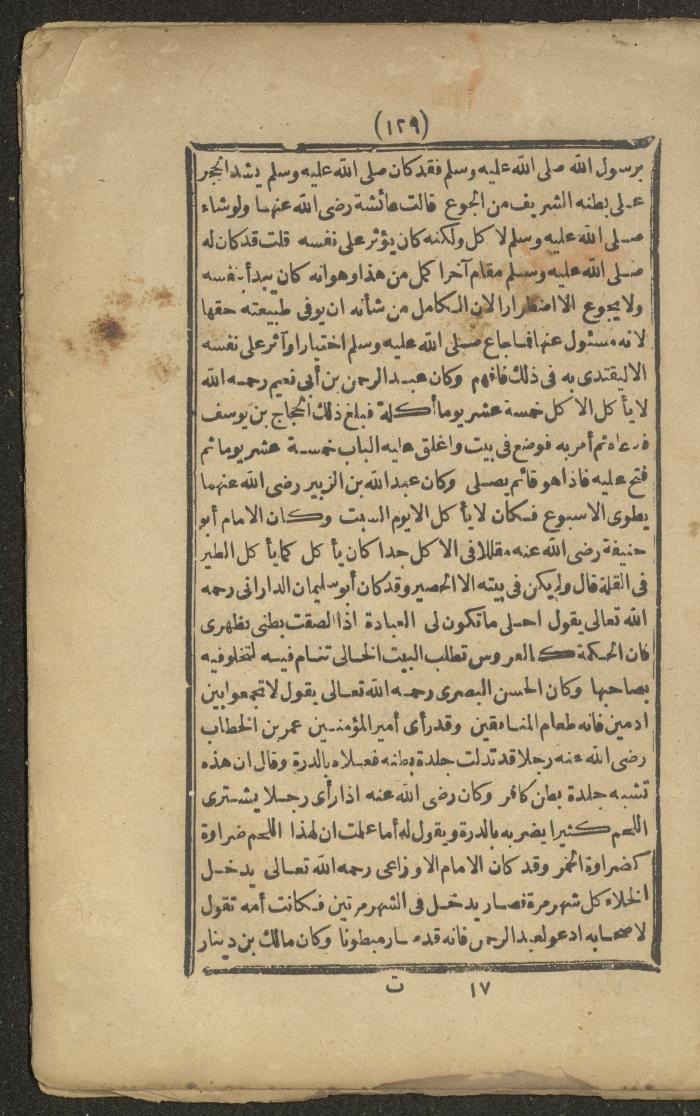 (١٢٩)
برسول الله صلى الله عليه وسلم فقد كان صلى الله عليه وسلم يشد الحجر
على بطنه الشريف من الجوع قالت عائشة رضى الله عنها ولو شاء
صلى الله عليه وسلم لا كل ولكنه كان يؤثر على نفسه قلت قد كان له
صلى الله عليه وسلم مقام آخر اكمل من هذا وهو انه كان يبدأ بنفسه
ولا يجوع الا اضطرارا لان الكامل من شأنه ان يوفى طبيعته حقها
لانه مسئول عنها فما جاع صلى الله عليه وسلم اختيارا وآثر على نفسه
الا ليقتدى به فى ذلك فافهم وكان عبد الرحمن بن أبى نعيم رحمه الله
لا يأكل الا كل خمسة عشر يوما أكلة فبلغ ذلك الحجاج بن يوسف
فدعاه ثم أمر به فوضع فى بيت واغلق عليه الباب خمسة عشر يوما ثم
فتح عليه فاذا هو قائم يصلى وكان عبد الله بن الزبير رضى الله عنهما
يطوى الاسبوع فكان لا يأكل الا يوم السبت وكان الامام أبو
حنيفة رضى الله عنه مقللا فى الاكل جدا كان يأكل كما يأكل الطير
فى القلة قال ولم يكن فى بيته الا الحصير وقد كان أبو سليمان الدارانى رحمه
الله تعالى يقول احلى ما تكون لى العبادة اذا الصقت بطنى بظهرى
فان الحكمة كالعروس تطلب البيت الخالى تنام فيه لتخلو فيه
بصاحبها وكان الحسن البصرى رحمه الله تعالى يقول لا تجمعوا بين
ادمين فانه طعام المنافقين وقد رأى أمير المؤمنين عمر بن الخطاب
رضى الله عنه رجلا قد تدلت جلدة بطنه فعلاه بالدرة وقال ان هذه
تشبه جلدة بطن كافر وكان رضى الله عنه اذا رأى رجلا يشترى
اللحم كثيرا يضربه بالدرة ويقول له أما علمت ان لهذا اللحم ضراوة
كضراوة الخمر وقد كان الامام الاوزاعى رحمه الله تعالى يدخل
الخلاء كل شهر مرة فصار يدخل فى الشهر مرتين فكانت أمه تقول
لاصحابه ادعو لعبد الرحمن فانه قد صار مبطونا وكان مالك بن دينار
١٧ ت